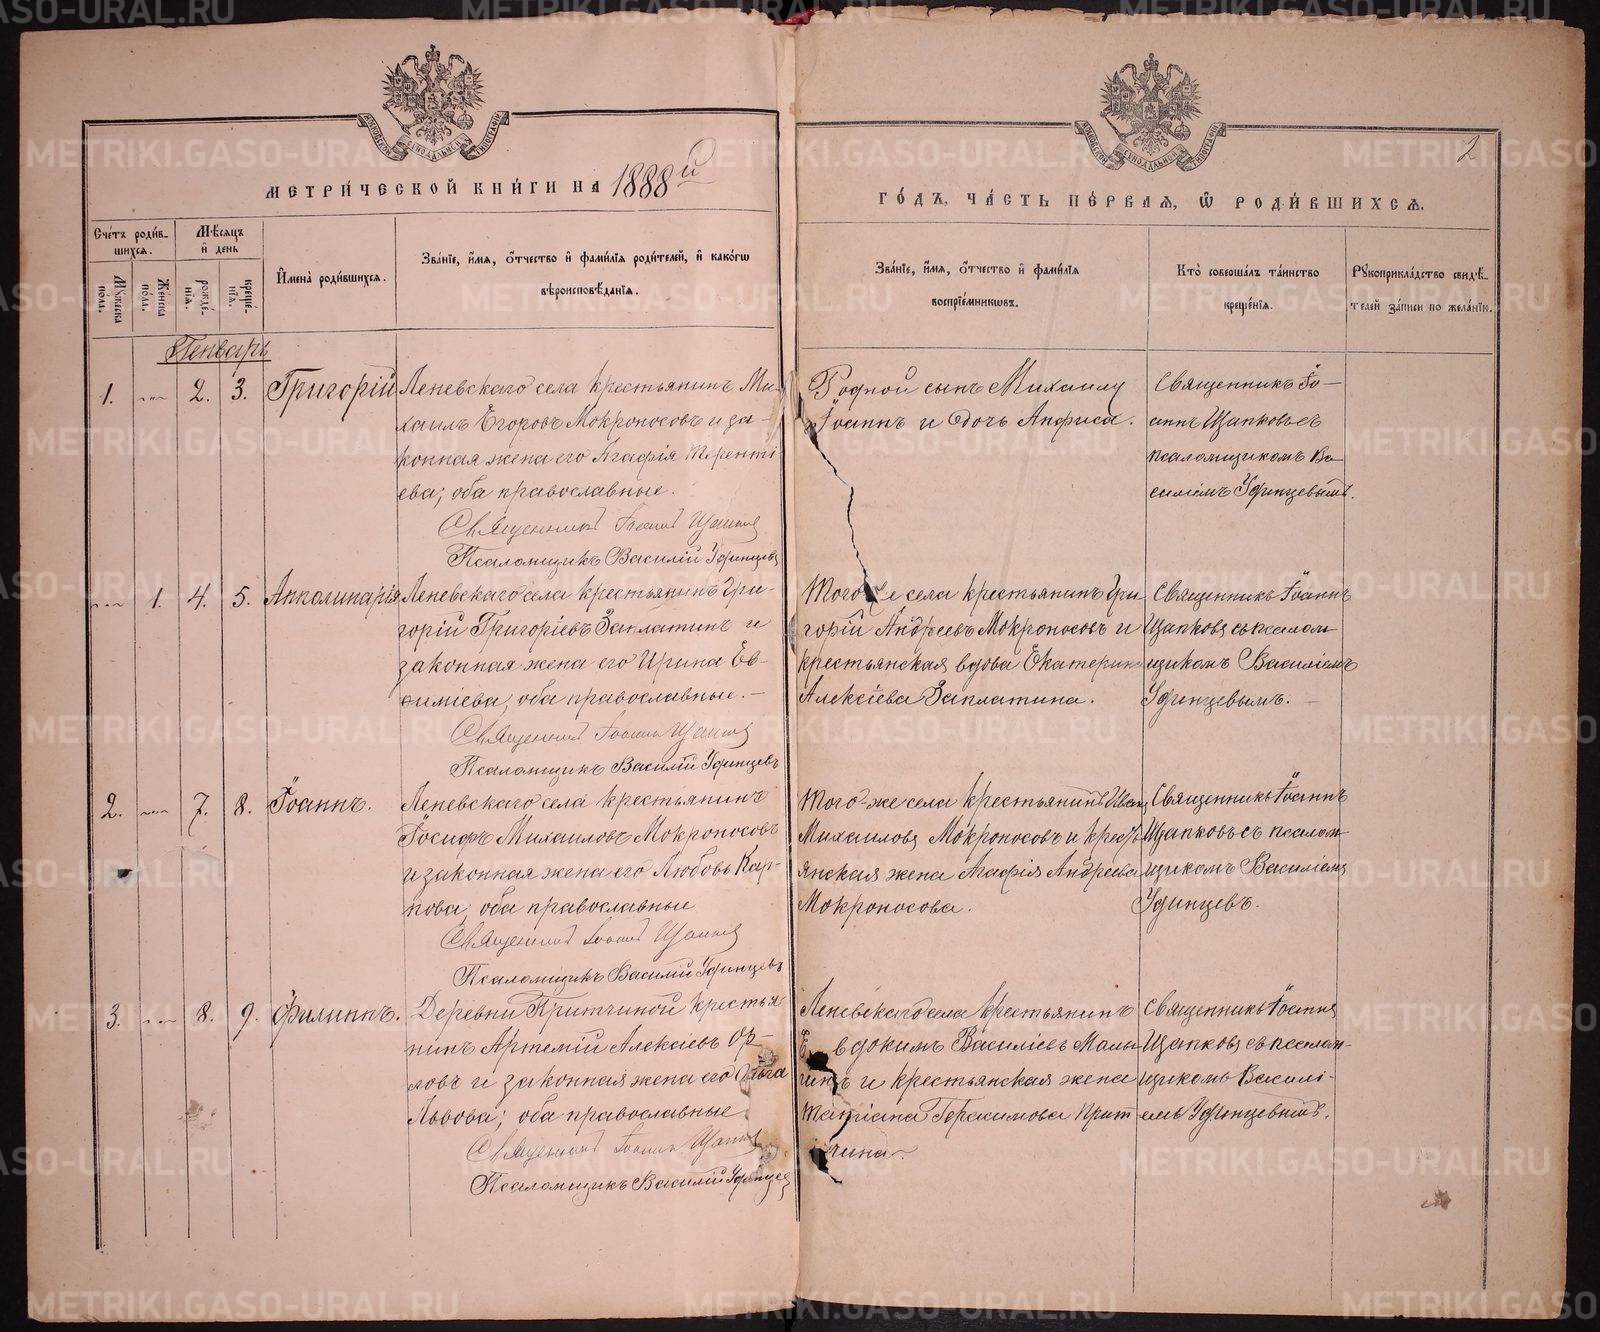 МЕТРИ́ЧЕСКОЙ КНИ́ГИ НА 1888й
ГО́ДЪ, ЧА́СТЬ ПЕ́РВАѦ, Ѡ РОДИ́ВШИХСѦ.
2
Сче́тъ роди́в-
шихсѧ.
Мѣ́сяцъ
и день
Мꙋ́жеска
по́ла.
Же́нска
по́ла.
рожде́-
нїѧ.
креще́-
нїѧ.
Имена̀ роди́вшихсѧ.
Зва́нїе, и́мѧ, о́тчество и фами́лїѧ роди́телей, и како́гѡ
вѣроисповѣ́данїѧ.
Зва́нїе, и́мѧ, о́тчество и фами́лїѧ
воспрїе́мникѡвъ.
Кто̀ соверша́лъ та́инство
креще́нїѧ.
Рꙋкоприкла́дство свидѣ́-
телей за́писи по жела́нїю.
Генварь
1. 2. 3. Григорій
Леневскаго села крестьянинъ Ми-
хаилъ Егоровъ Мокроносовъ и за-
конная жена его Агафія Теренті-
ева; оба православные.
Священникъ Іоаннъ Щапковъ
Псаломщикъ Василій Удинцевъ
Родной сынъ Михаилу
Іоаннъ и дочь Анфиса.
Священникъ Іо-
аннъ Щапковъ съ
псаломщикомъ Ва-
силіемъ Удинцевымъ.
1. 4. 5. Апполинарія
Леневскаго села крестьянинъ Гри-
горій Григоріевъ Заплатинъ и
законная жена его Ирина Ев-
фиміева, оба православные.
Священникъ Іоаннъ Щапковъ
Псаломщикъ Василій Удинцевъ
Того же села крестьянинъ Гри
горій Андреевъ Мокроносовъ и
крестьянская вдова Екатерина
Алексіева Заплатина.
Священникъ Іоаннъ
Щапковъ съ псалом
щикомъ Василіемъ
Удинцевымъ.
2. 7. 8. Іоаннъ.
Леневскаго села крестьянинъ
Іосифъ Михаиловъ Мокроносовъ
и законная жена его Любовь Кар-
пова, оба православные
Священникъ Іоаннъ Щапковъ
Псаломщикъ Василій Удинцевъ
Того-же села крестьянинъ Иванъ
Михаиловъ Мокроносовъ и кресть
янская жена Агафія Андреева
Мокроносова.
Священникъ Іоаннъ
Щапковъ съ псалом-
щикомъ Василіемъ
Удинцевъ.
3. 8. 9. Филиппъ.
Деревни Притчиной крестья
нинъ Артемій Алексіевъ Ор-
ловъ и законная жена его Ольга
Львова; оба православные
Священникъ Іоаннъ Щапковъ
Псаломщикъ Василій Удинцевъ
Леневскаго села крестьянинъ
Евдокимъ Василіевъ Малы
гинъ и крестьянская жена
Татіана Герасимова Прит
чина.
Священникъ Іоаннъ
Щапковъ съ псалом-
щикомъ Василі-
емъ Удинцевымъ.
METRIKI.GASO-URAL.RU